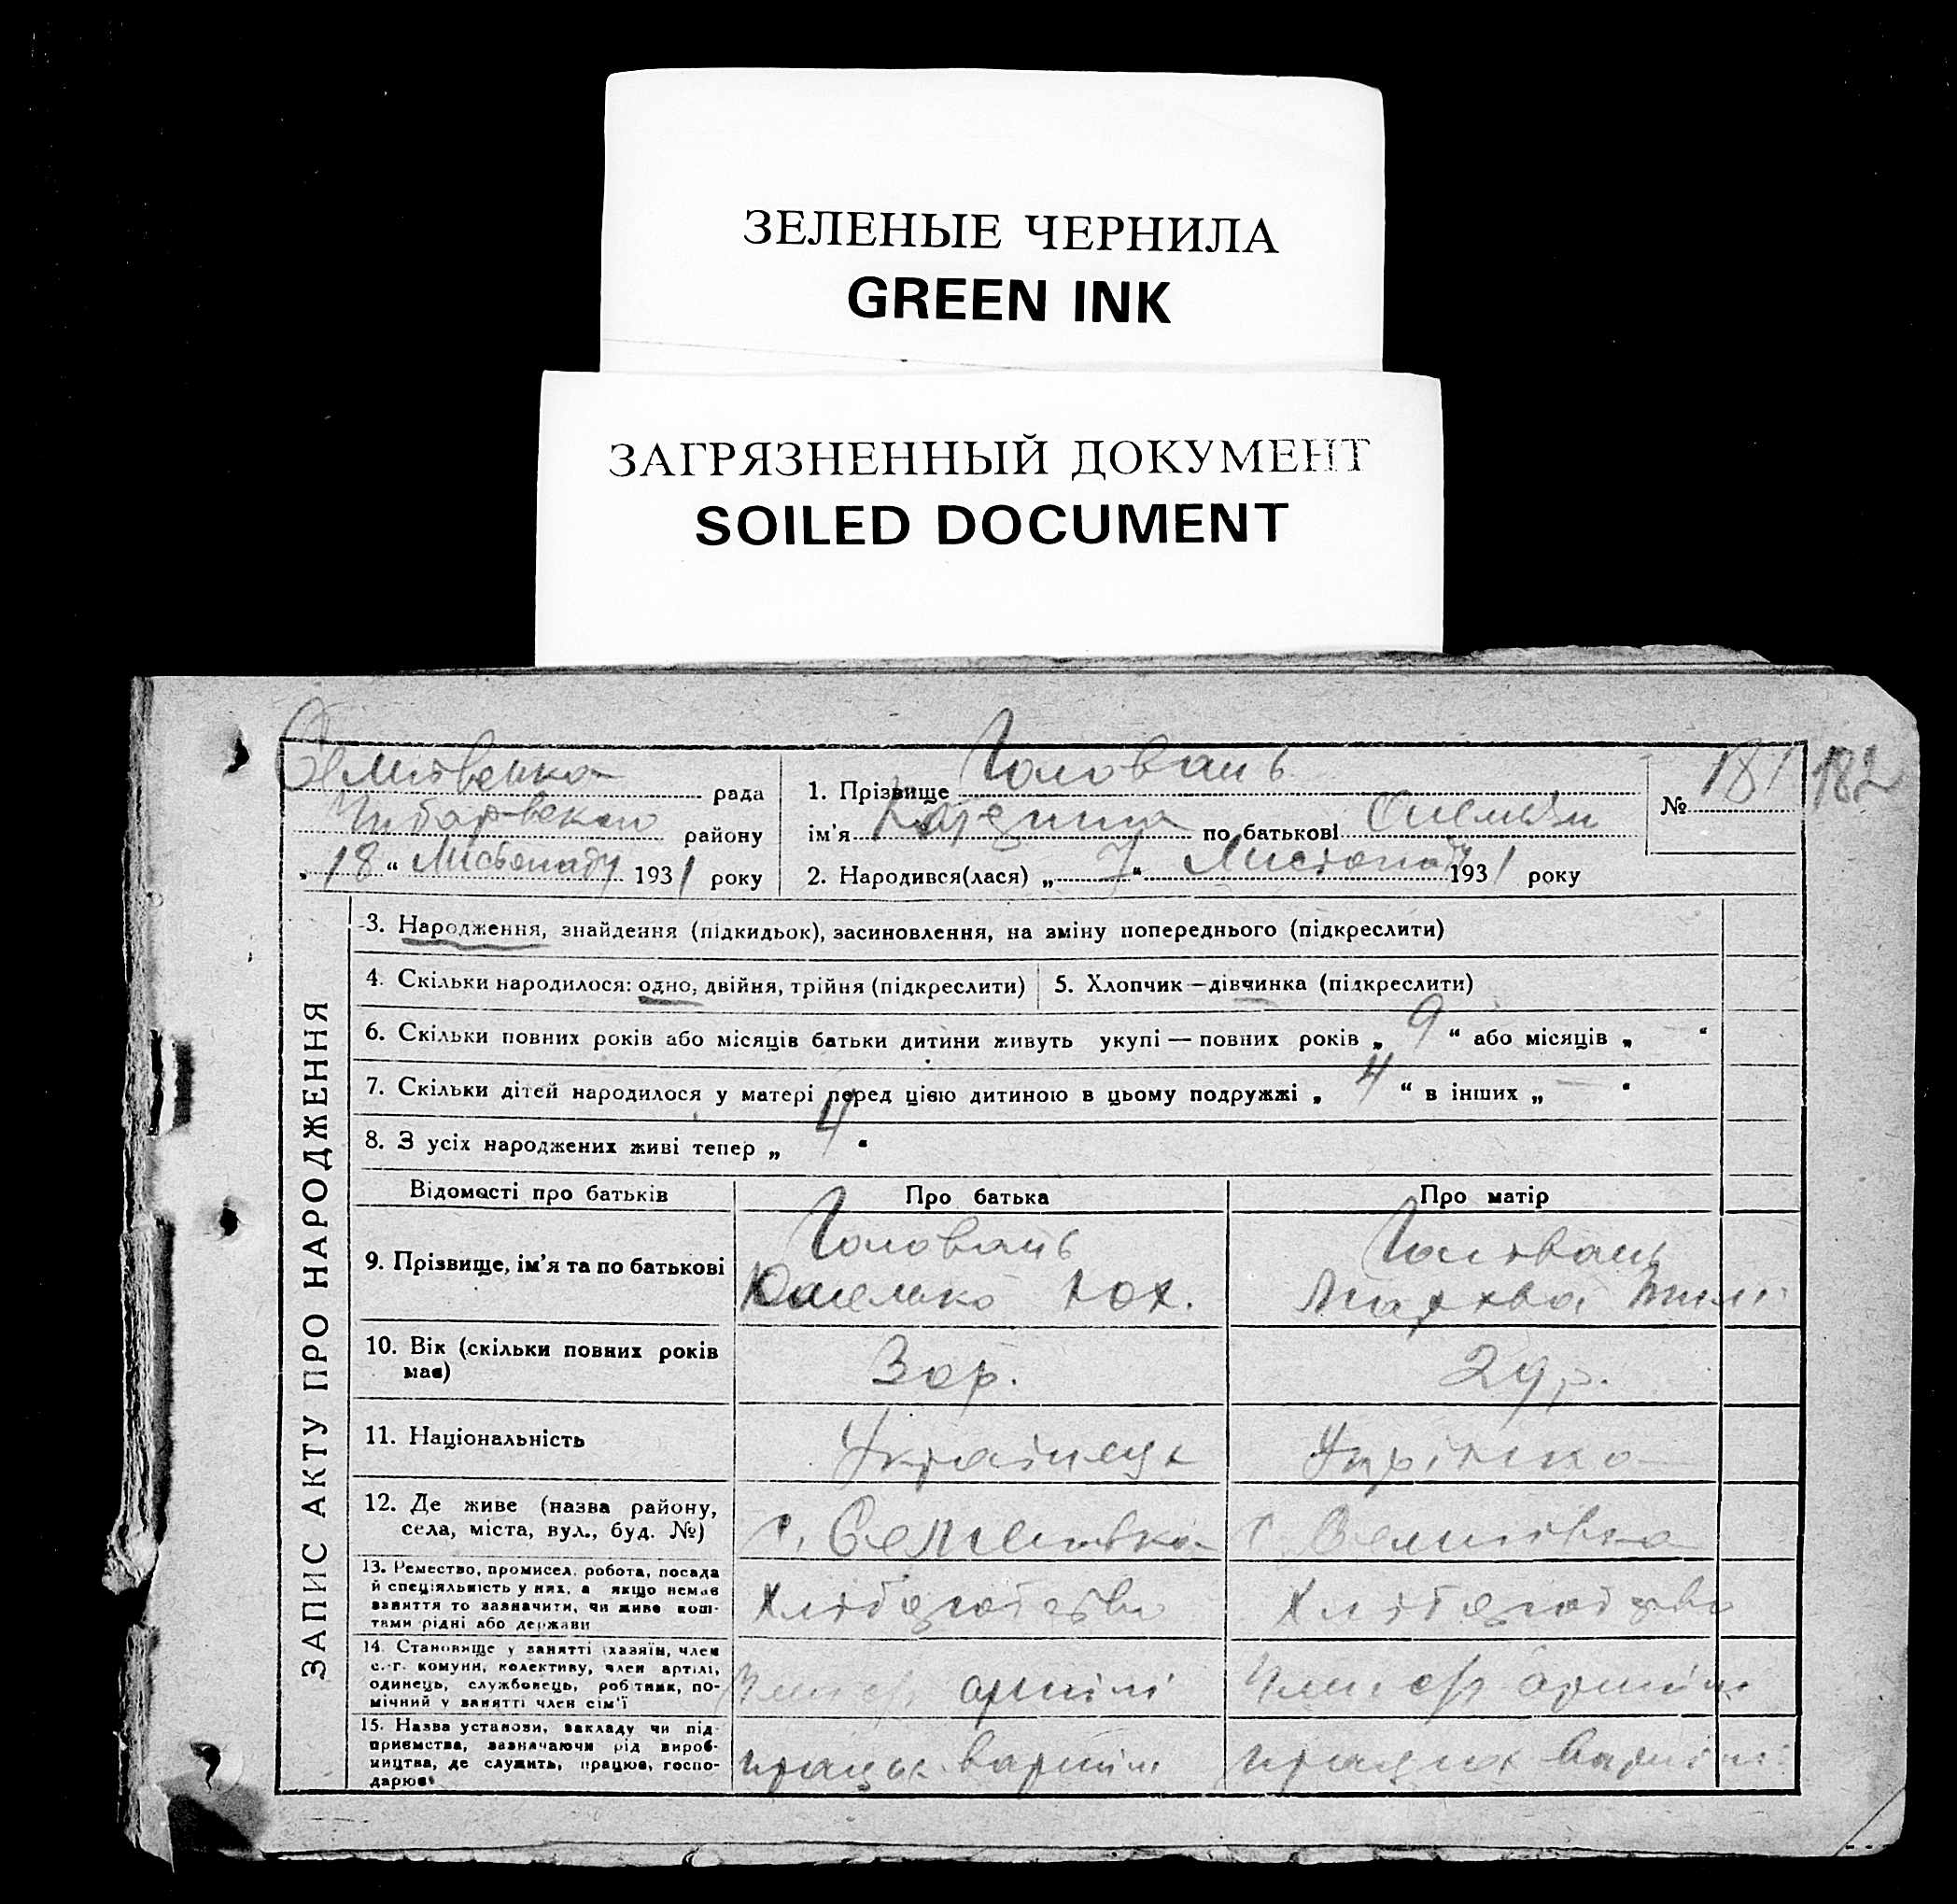 ЗЕЛЕНЫЕ ЧЕРНИЛА
GREEN INK
ЗАГРЯЗНЕННЫЙ ДОКУМЕНТ
SOILED DOCUMENT
рада
району
„ 18 “ Листопаду 1931 року
1. Прізвище Головань
ім'я Катерина по батькові
2. Народився(лася) „ 7 “ Листопаду 1931 року
№ 181 182
ЗАПИС АКТУ ПРО НАРОДЖЕННЯ
3. Народження, знайдення (підкидьок), засиновлення, на зміну попереднього (підкреслити)
4. Скільки народилося: одно, двійня, трійня (підкреслити) 5. Хлопчик—дівчинка (підкреслити)
6. Скільки повних років або місяців батьки дитини живуть укупі — повних років „ 9 “ або місяців „ — “
7. Скільки дітей народилося у матері перед цією дитиною в цьому подружжі „ 4 “ в інших „ — “
8. З усіх народжених живі тепер „ 4 “
Відомості про батьків Про батька Про матір
9. Прізвище, ім'я та по батькові Головань Головань
10. Вік (скільки повних років має) 30 р. 29 р.
11. Національність Українець
12. Де живе (назва району, села, міста, вул., буд. №) с. с.
13. Ремество, промисел, робота, посада
й спеціяльність у них, а якщо немає
заняття то зазначити, чи живе кош-
тами рідні або держави
Хліборобство Хліборобство
14. Становище у занятті (хазяїн, член
с.-г. комуни, колективу, член артілі,
одинець, службовець, робітник, по-
мічний у занятті член сім'ї
артілі Член с/г артілі
15. Назва установи, закладу чи під-
приємства, зазначаючи рід вироб-
ництва, де служить, працює, госпо-
дарює
працює в артілі працює в артілі